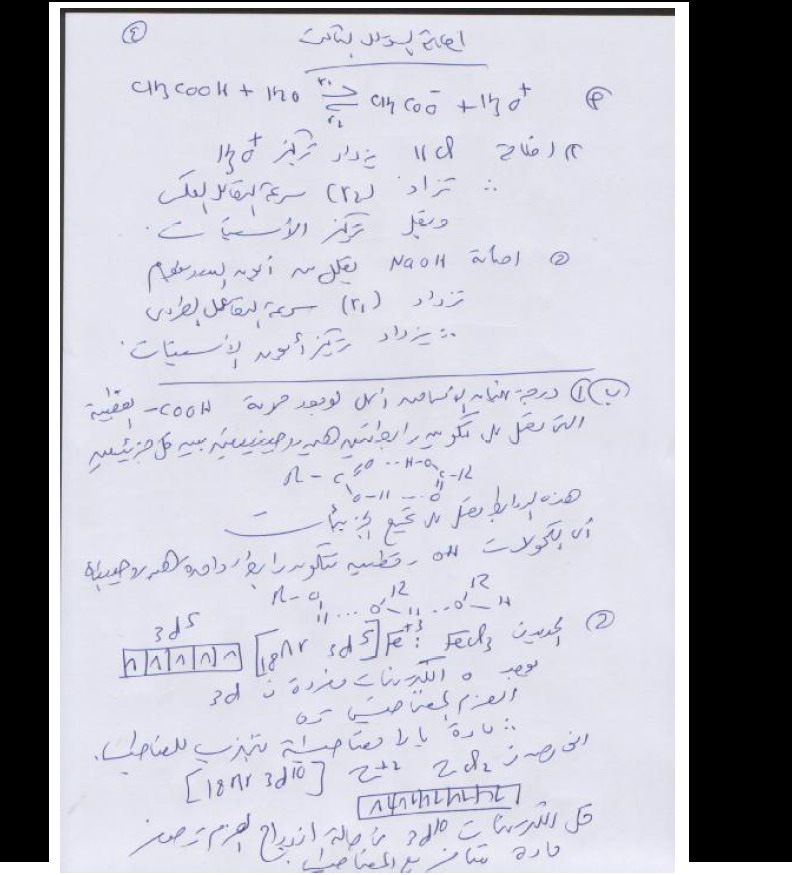 ٤
اجابة السؤال الثالث
CH3COOH + H2O ⇌ CH3COO- + H3O+ (أ)
r1
r2
١) اضافة HCl يزداد تركيز H3O+
∴ تزداد (r2) سرعة التفاعل العكسى
ويقل تركيز الأسيتات
② اضافة NaOH يقلل من أيون الهيدرونيوم
تزداد (r1) سرعة التفاعل الطردى
∴ يزداد تركيز أيون الأسيتات
(ب) ① درجة غليان الأحماض أعلى لوجود مجموعة COOH- القطبية
التى تعمل على تكوين رابطتين هيدروجينيتين بين كل جزيئين
R-C O...H-O C-R
O-H...O
هذه الروابط تعمل على تجميع الجزيئات
أن الكحولات OH قطبية تتكون رابطة واحدة هيدروجينية
R-O R R
H...O-H...O-H
② الحديد فى FeCl3 Fe+3: [18Ar 3d5] 3d5
يوجد ٥ الكترونات مفردة فى 3d
العزم المغناطيسى
∴ مادة بارا مغناطيسية تنجذب للمغناطيس.
الخارصين فى ZnCl2 Zn+2 [18Ar 3d10]
كل الكترونات 3d10 فى حالة ازدواج العزم = صفر
مادة تتنافر مع المغناطيس.